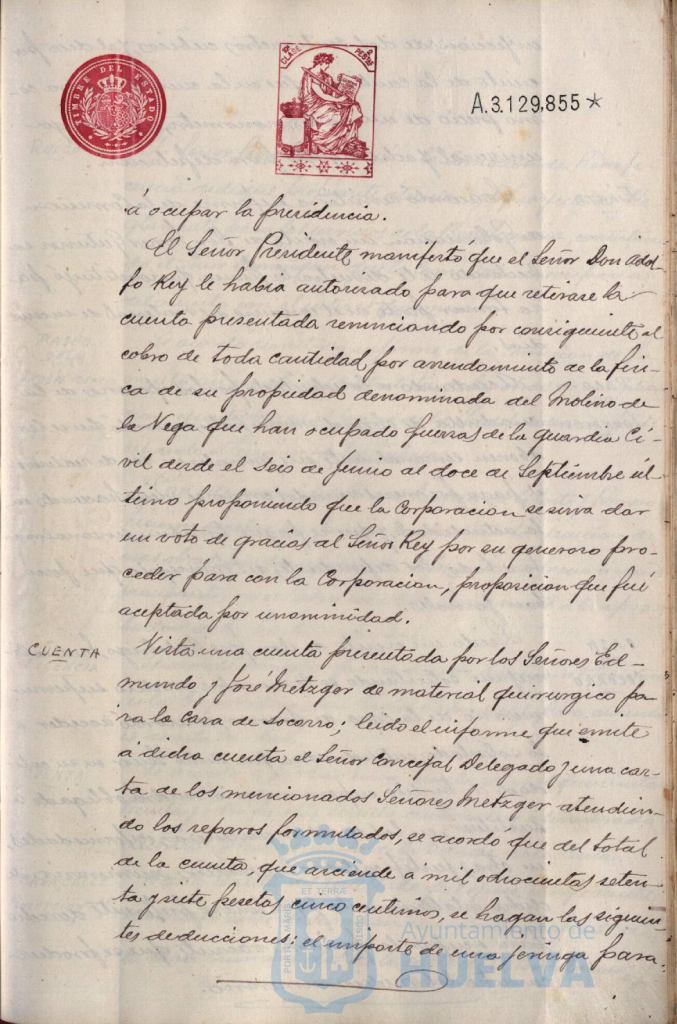 TIMBRE DEL ESTADO
CLASE
PESETAS
A.3.129,855*
á ocupar la presidencia.
El Señor Presidente manifestó que el Señor Don Adol-
fo Rey le habia autorizado para que retirase la
cuenta presentada renunciando por consiguiente al
cobro de toda cantidad por arrendamiento de la fin-
ca de su propiedad denominada del Molino de
la Vega que han ocupado fuerzas de la guardia Ci-
vil desde el seis de Junio al doce de Septiembre úl-
timo proponiendo que la Corporacion se sirva dar
un voto de gracias al Señor Rey por su generoso pro-
ceder para con la Corporacion, proposicion que fué
aceptada por unanimidad.
CUENTA
Vista una cuenta presentada por los Señores Ed-
mundo y José Metzger de material quirurgico pa-
ra la Casa de Socorro; leido el informe que emite
á dicha cuenta el Señor Concejal Delegado y una car-
ta de los mencionados Señores Metzger atendien-
do los reparos formulados, se acordó que del total
de la cuenta, que asciende á mil ochocientas seten-
ta y siete pesetas cinco centimos, se hagan las siguien-
tes deducciones: el importe de una jeringa para
Ayuntamiento de
HUELVA